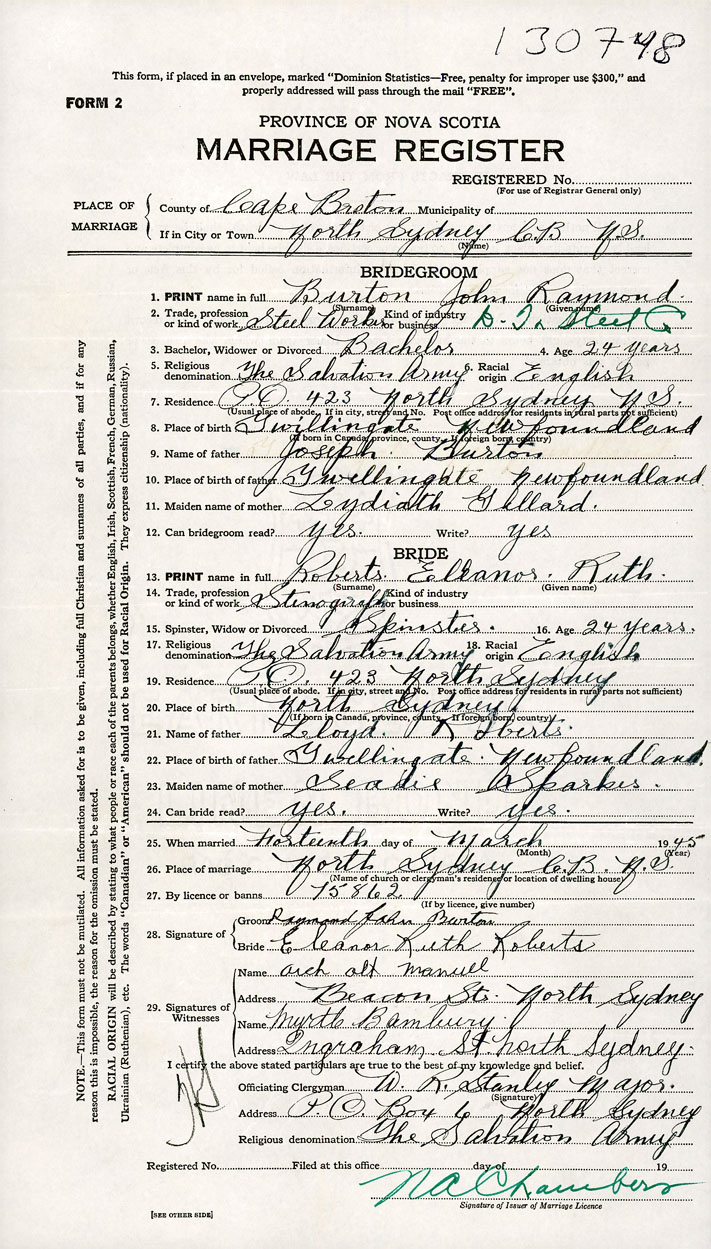 130748
This form, if placed in an envelope, marked "Dominion Statistics—Free, penalty for improper use $300," and
properly addressed will pass through the mail "FREE".
FORM 2
PROVINCE OF NOVA SCOTIA
MARRIAGE REGISTER
REGISTERED No.
(For use of Registrar General only)
PLACE OF MARRIAGE
County of Cape Breton Municipality of
If in City or Town North Sydney C.B N.S.
(Name)
BRIDEGROOM
1. PRINT name in full Burton John Raymond.
(Surname) (Given name)
2. Trade, profession or kind of work Steel Worker Kind of industry or business Steel
3. Bachelor, Widower or Divorced Bachelor 4. Age 24 years
5. Religious denomination The Salvation Army. Racial origin English
7. Residence P.O. 423 North Sydney N.S.
(Usual place of abode. If in city, street and No. Post office address for residents in rural parts not sufficient)
8. Place of birth Twillingate Newfoundland
(If born in Canada, province, county. If foreign born, country)
9. Name of father Joseph Burton
10. Place of birth of father Twillingate Newfoundland.
11. Maiden name of mother Lydiath Gillard.
12. Can bridegroom read? yes. Write? yes
BRIDE
13. PRINT name in full Roberts. Eleanor. Ruth.
(Surname) (Given name)
14. Trade, profession or kind of work Kind of industry or business
15. Spinster, Widow or Divorced Spinster. 16. Age 24 years.
17. Religious denomination The Salvation Army 18. Racial origin English
19. Residence P.O. 423 North Sydney
(Usual place of abode. If in city, street and No. Post office address for residents in rural parts not sufficient)
20. Place of birth North Sydney
(If born in Canada, province, county. If foreign born, country)
21. Name of father Lloyd. Roberts.
22. Place of birth of father Twillingate. Newfoundland.
23. Maiden name of mother Sparkes.
24. Can bride read? yes. Write? yes.
25. When married day of March 1945
(Month) (Year)
26. Place of marriage North Sydney C.B. N.S.
(Name of church or clergyman's residence or location of dwelling house)
27. By licence or banns 15862
(If by licence, give number)
28. Signature of
Groom Raymond John Burton
Bride Eleanor Ruth Roberts
29. Signatures of Witnesses
Name manuel
Address Beacon St. North Sydney
Name Myrtle Bambury.
Address Ingraham St. North Sydney.
I certify the above stated particulars are true to the best of my knowledge and belief.
Officiating Clergyman W. R. Stanley Major.
(Signature)
Address P.O Box 6 North Sydney
Religious denomination The Salvation Army
Registered No. Filed at this office day of 19
N A Chambers
Signature of Issuer of Marriage Licence
[SEE OTHER SIDE]
NOTE.—This form must not be mutilated. All information asked for is to be given, including full Christian and surnames of all parties, and if for any
reason this is impossible, the reason for the omission must be stated.
RACIAL ORIGIN will be described by stating to what people or race each of the parents belongs, whether English, Irish, Scottish, French, German, Russian,
Ukrainian (Ruthenian), etc. The words "Canadian" or "American" should not be used for Racial Origin. They express citizenship (nationality).